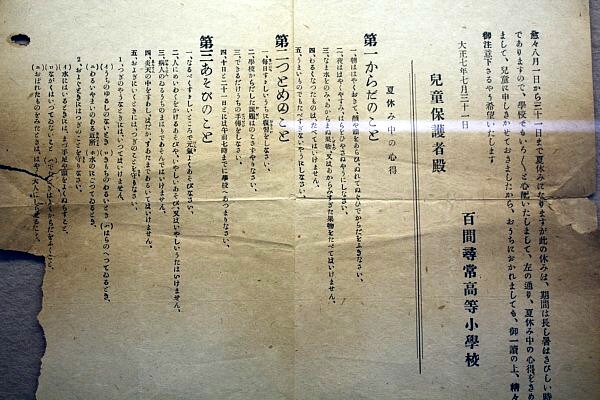 愈々八月一日から三十一日まで夏休みになりますが此の休みは、期間は長し暑はきびしい時
でありますので、學校でもいろ〳〵と心配いたしまして、左の通り、夏休み中の心得をきめ
まして、兒童に申しきかせておきましたから、おうちにおかれましても、御一讀の上、精々
御注意下さるやう希望いたします
大正七年七月三十一日
百間尋常高等小學校
兒童保護者殿
夏休み中の心得
第一からだのこと
一、朝ははやくおきて、顔や齒をあらひ、ぬれてぬぐひでからだをふきなさい。
二、夜ははやくやすみ、はらをひやさぬやうにしなさい。
三、なま水をのみ、あからまぬ果物、又はあかみすぎた果物をたべてはいけません。
四、わるくなつたものは、たべてはいけません。
五、うまいものでもたべすぎないやうにしなさい。
第二つとめのこと
一、毎日すゞしいうちに復習をしなさい。
二、學校からだした宿題はのこさずやりなさい。
三、できるだけうちの手傳をしなさい。
四、十日と二十一日とには午前七時までに學校へあつまりなさい。
第三あそびのこと
一、なるべくすゞしいところで元氣よくあそびなさい。
二、人にめいわくをかけるあそびや、いやしいあそび、又はいやしいうたはいけません。
三、病人のゐるうちのまはりであそんではいけません。
四、炎天の中をすわし、はだか、あたまであるいてはいけません。
五、およぎにいくときには、つぎのことを守りなさい。
1、つぎのやうなときには、いつてはいけません。
(イ)うちのゆるしのないとき (ロ)きもちのわるいとき (ハ)はらのへつてゐるとき、
(ニ)わるいやまひのある近所 (ホ)水のにごつてゐるとき、
2、およぐときにはつぎのことを守りなさい。
(イ)水にはいるときには、まづ手足や頭をよくぬらすこと、
(ロ)ながくはいつてゐないこと
(ニ)おぼれたものをみたときは、はやく大人にしらせること、